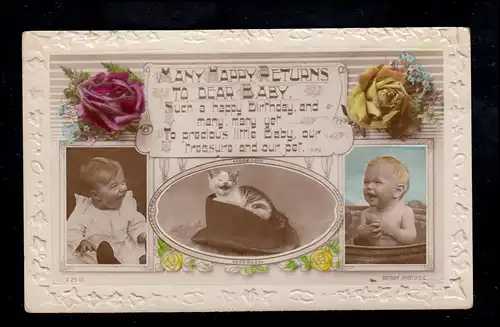 MANY HAPPY RETURNS
TO DEAR BABY.
Such a happy Birthday, and
many, many yet
To precious little Baby, our
Treasure and our pet.
ROTARY PHOTO E.C.